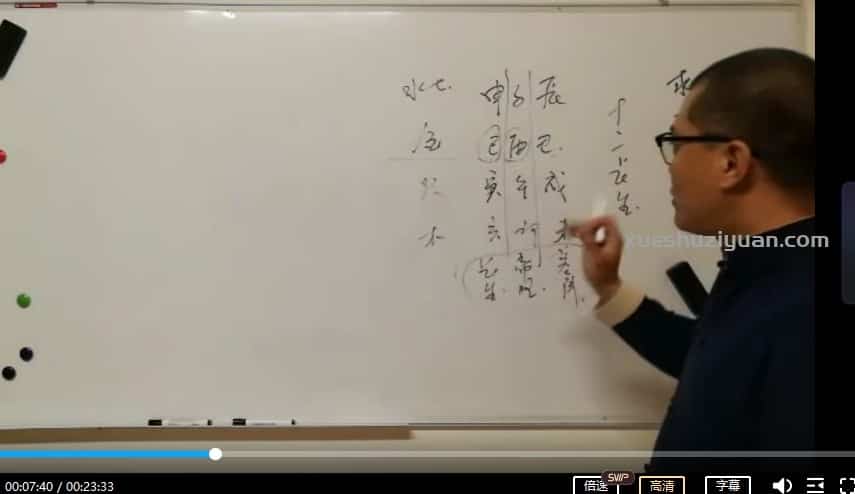 水土 申子辰
金 巳酉丑
火 寅午戌
木 亥卯未
长生 帝旺 墓库
十二长生
xueshuziyuan.com
00:07:40 / 00:23:33
倍速
SVIP
高清
字幕